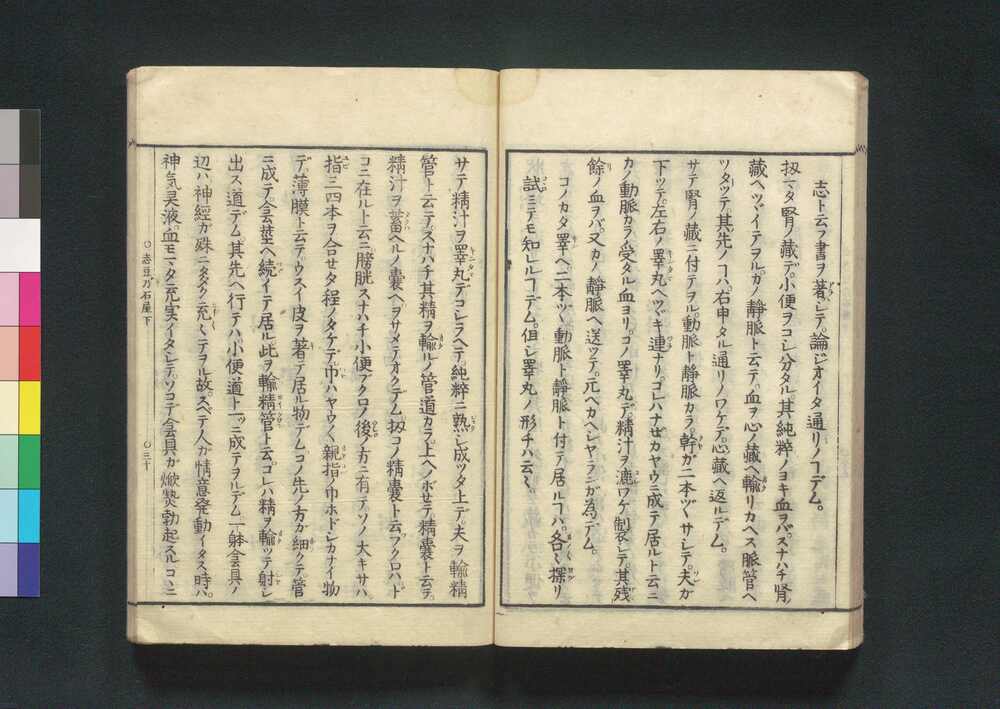 志ト云フ書ヲ著シテ論ジオイタ通リノヿデム。
扨マタ腎ノ藏デ小便ヲコシ分タル。其純粹ノヨキ血ヲバ。スナハチ腎ノ
藏ヘツヾイテヲルガノ靜脈ト云テ。血ヲ心ノ藏ヘ輸リカヘス脈管ヘ
ツタツテ其先ノヿハ。右申タル通リノワケデ。心藏ヘ返ルデム。
サテ腎ノ藏ニ付テヲル。動脈ト靜脈カラ。幹ガ二本ヅヽサシテ。夫ガ
下ツテ。左右ノ睪丸ヘツヾキ連ナリ。コレハナゼカヤウニ成テ居ルト云ニ
カノ動脈カラ受タル血ヨリ。コノ睪丸デ。精汁ヲ漉ワケ制シテ。其残
餘ノ血ヲバ。又カノ靜脈ヘ送ツテ。元ヘカヘシヤランガ為デム。
コノカタ睪ヘ二本ヅヽ動脈ト靜脈ト付テ居ルヿハ。各〻探リ
試ミテモ知レルヿデム。但シ睪丸ノ形チハ云〻
サテ精汁ヲ睪丸デコシラヘテ。純粹ニ熟シ成ツタ上デ。夫ヲ輸精
管ト云テ。スナハチ其精ヲ輸ルノ管道カラ。上ヘノボセテ。精嚢ト云テ。
精汁ヲ蓄ヘルノ嚢ヘヲサメテオクデム。扨コノ精嚢ト云フクロハ。ド
コニ在ルト云ニ膀胱スナハチ小便ブクロノ後ノ方ニ有テソノ大キサハ
指三四本ヲ合セタ程ノタケデ。巾ハヤウ〱親指ノ巾ホドシカナイ物
デ。薄膜ト云テ。ウスイ皮ヲ著テ居ル物デム。コノ先ノ方ガ細クテ管
ニ成テ。陰莖ヘ続イテ居ル此ヲ輸精管ト云。コレハ精ヲ輸ツテ射シ
出ス道デム。其先ヘ行テハ。小便道ト一ツニ成テヲルデム。一躰陰具ノ
辺ハ神經ガ殊ニタクサン充〱テヲル故。スベテ人ガ情意発動イタス時ハ。
神気灵液血モマタ充実イタシテ。ソコデ陰具ガ焮熱勃起スルヿニ
〇志豆乃石屋下
〇三十